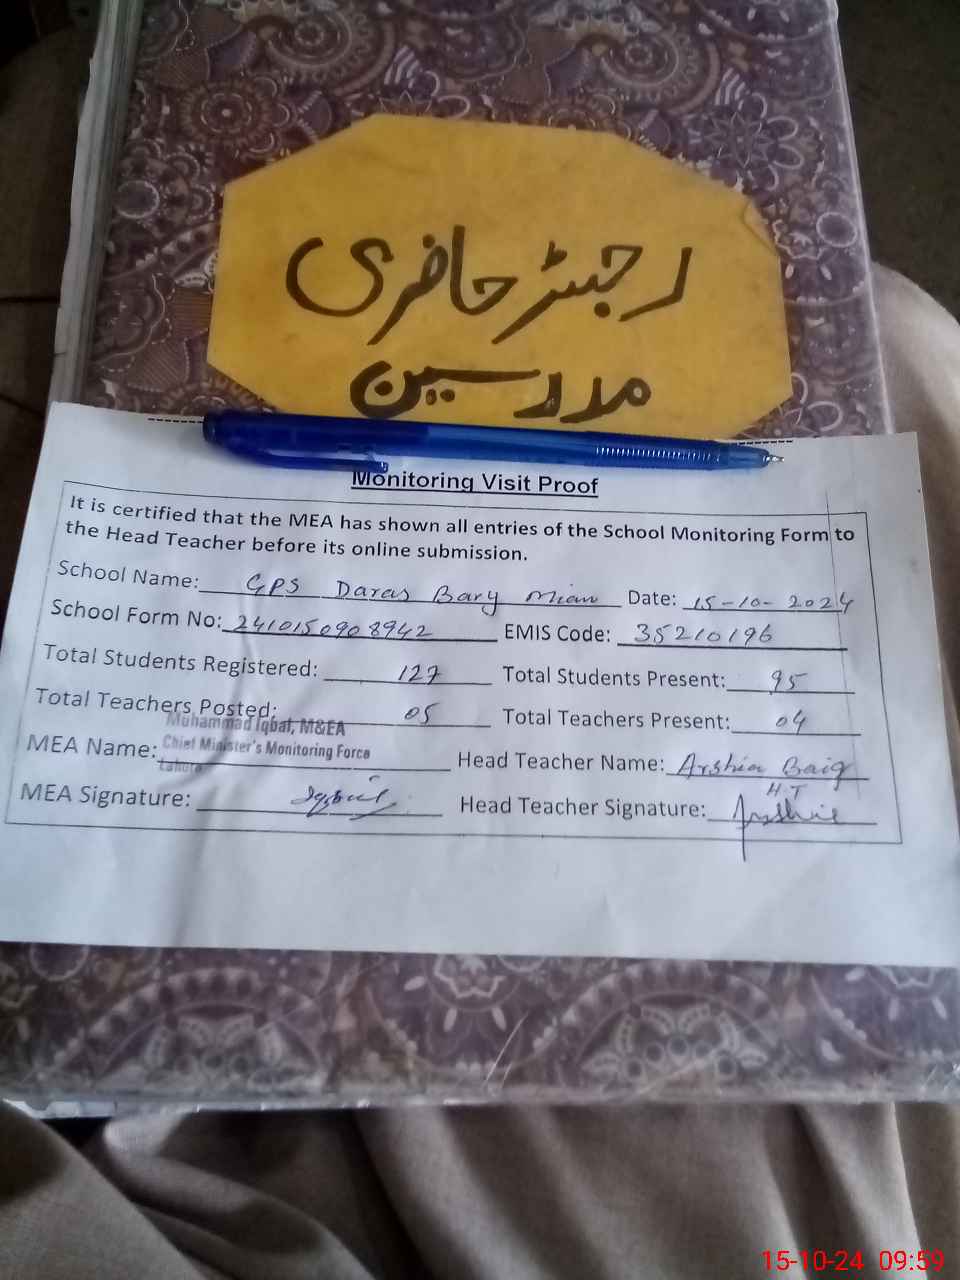 رجسٹر حاضری
مدرسین
Monitoring Visit Proof
It is certified that the MEA has shown all entries of the School Monitoring Form to
the Head Teacher before its online submission.
School Name: GPS Daras Bary Mian Date: 15-10-2024
School Form No: 2410150908942 EMIS Code: 35210196
Total Students Registered: 127 Total Students Present: 95
Total Teachers Posted: 05 Total Teachers Present: 04
Muhammad Iqbal, M&EA
MEA Name: Chief Minister's Monitoring Force Head Teacher Name: Arshia Baig
Lahore
H.T
MEA Signature: Iqbal Head Teacher Signature: Arshia
15-10-24 09:59